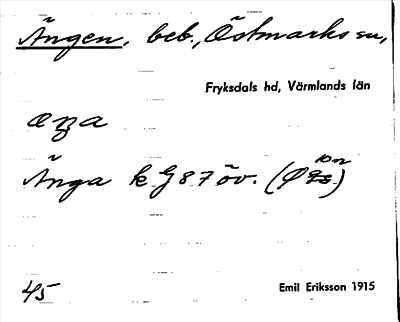 Ängen, beb., Östmarks sn,
Fryksdals hd, Värmlands län
Änga k G87 öv. (Ø
45
Emil Eriksson 1915